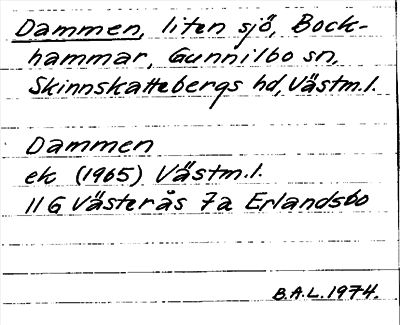 Dammen, liten sjö, Bock-
hammar, Gunnilbo sn,
Skinnskattebergs hd, Västm.l.
Dammen
ek (1965) Västm.l.
11G Västerås 7a Erlandsbo
B.A.L. 1974.